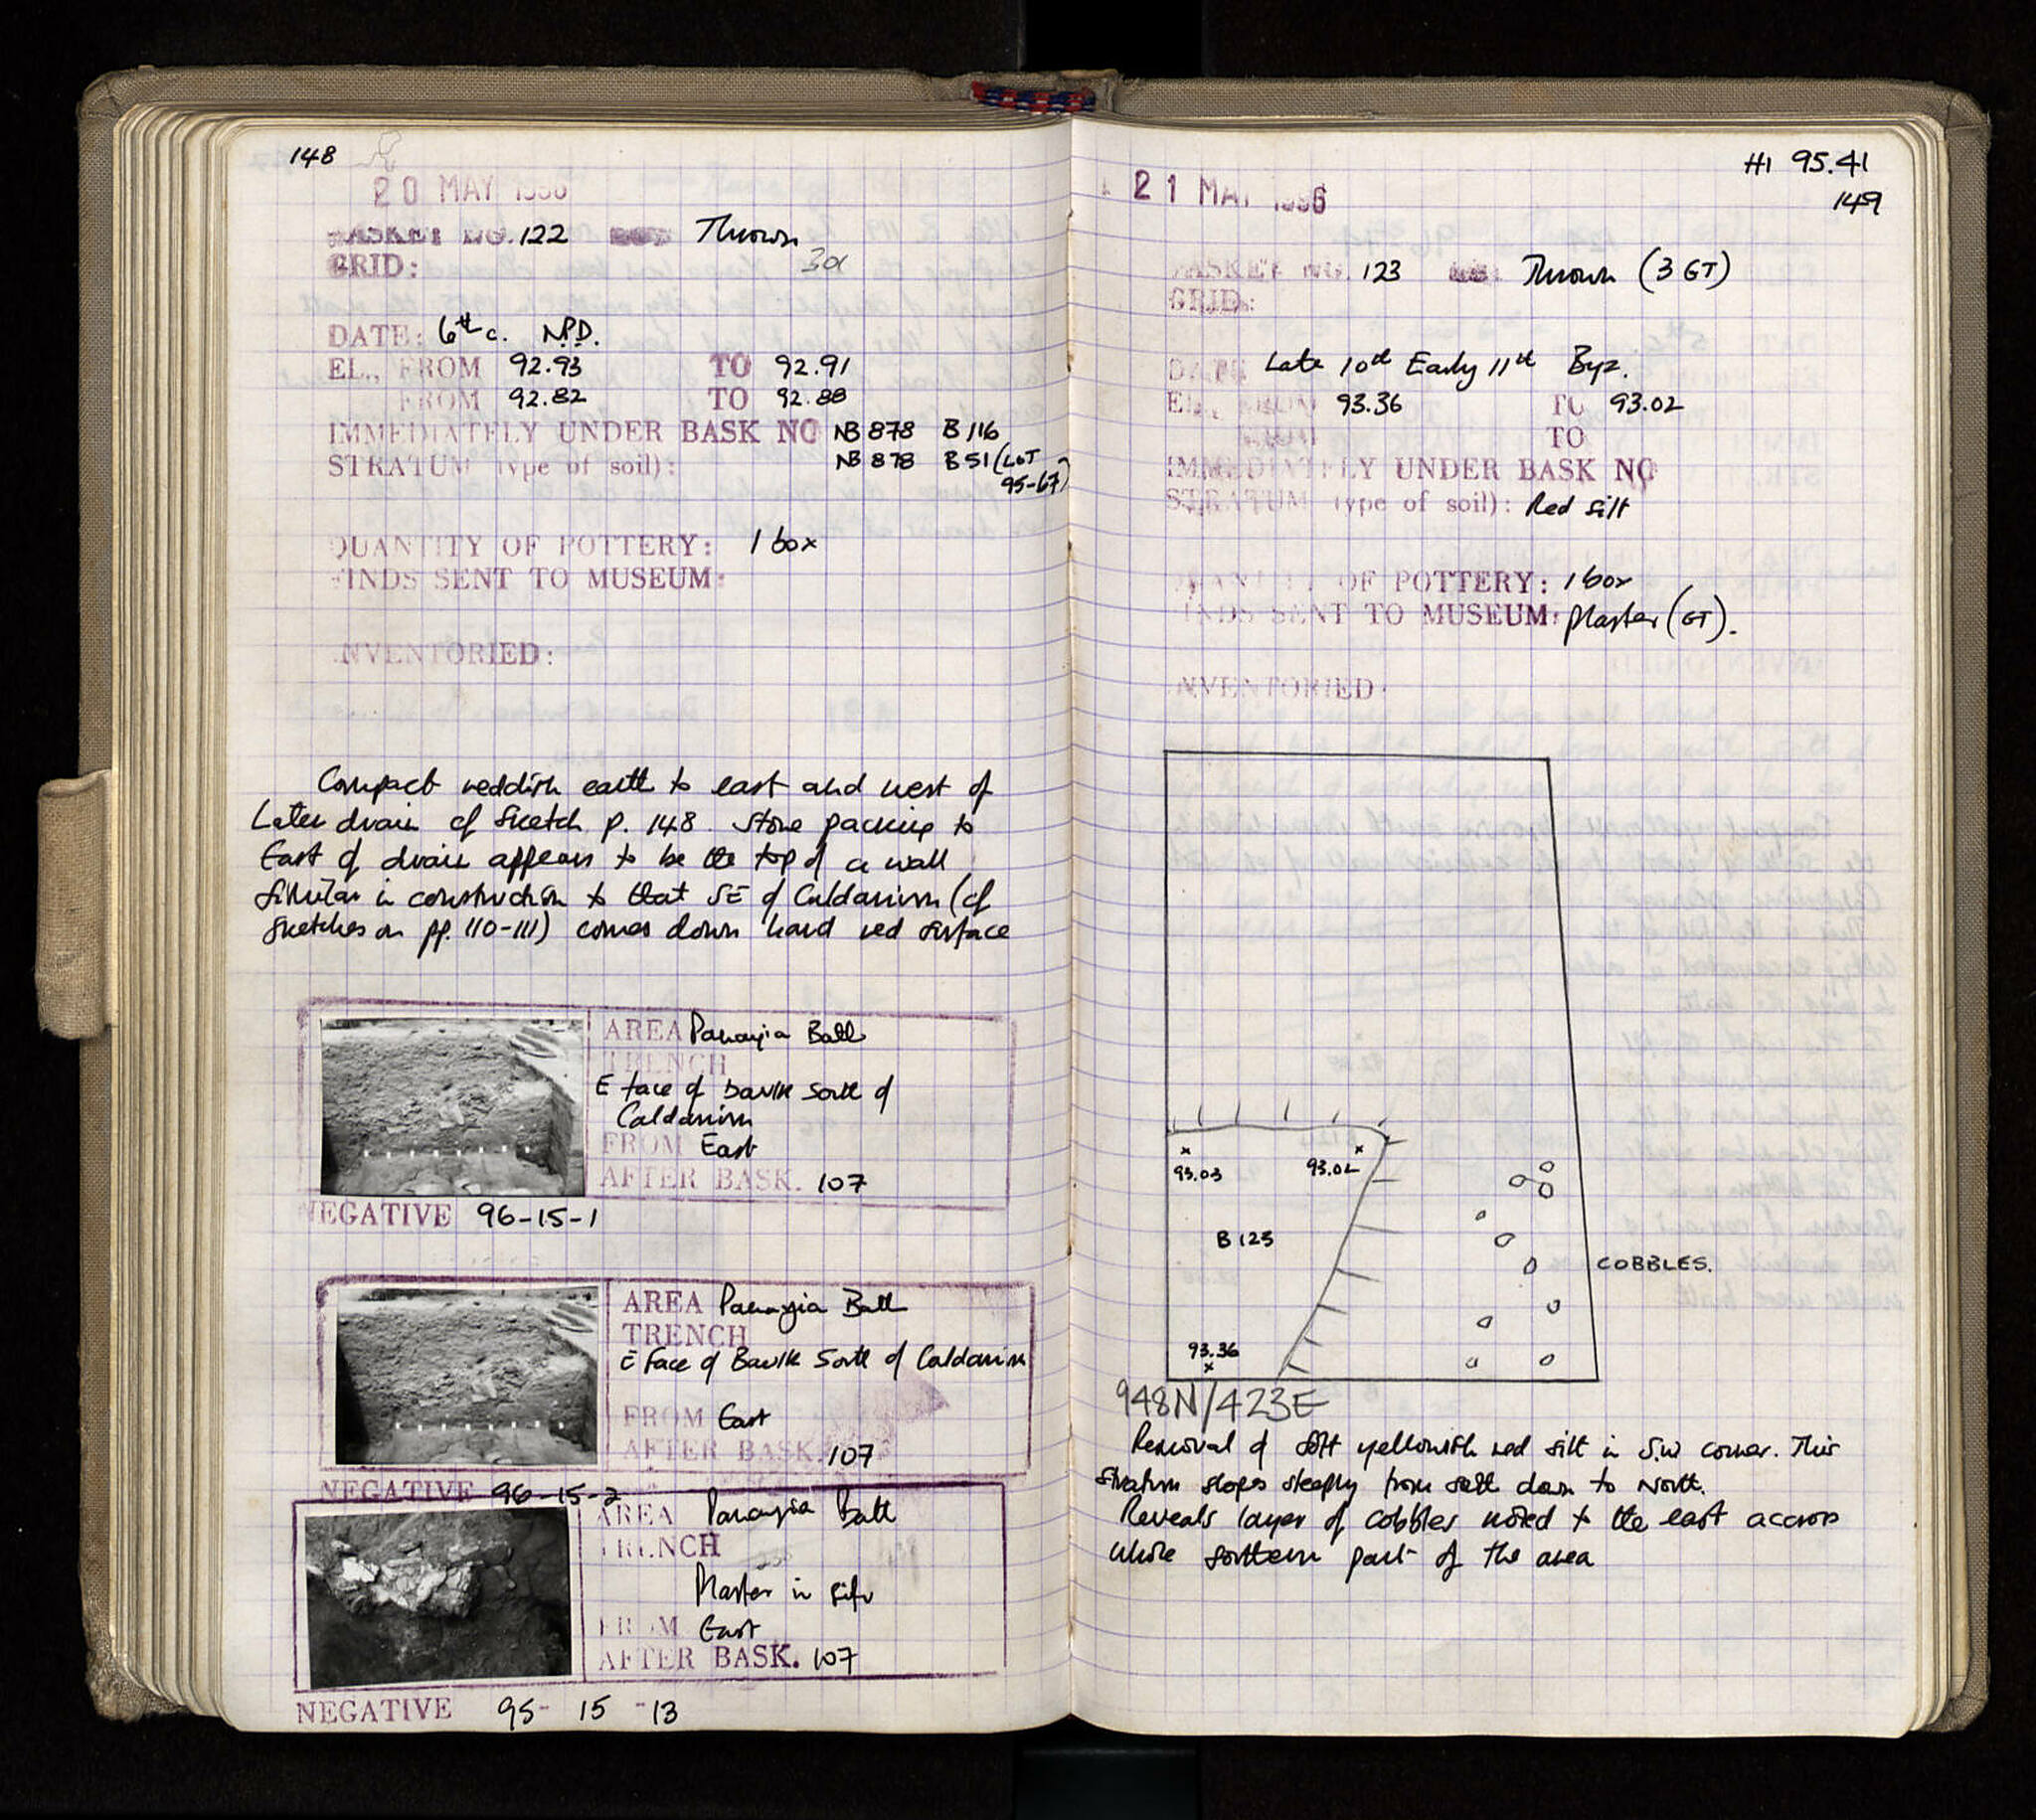 148
20 MAY 1996
BASKET NO. 122 Thrown
30
GRID:
DATE: 6th c. N.P.D.
EL., FROM 92.93 TO 92.91
FROM 92.82 TO 92.88
IMMEDIATELY UNDER BASK NO NB 878 B 116
STRATUM (type of soil): NB 878 B 51 (LOT
95-67)
QUANTITY OF POTTERY: 1 box
FINDS SENT TO MUSEUM:
INVENTORIED:
Compact reddish earth to east and west of
Later drain cf sketch p. 148. Stone packing to
East of drain appears to be the top of a wall
similar in construction to that SE of Caldarium (cf
sketches on pp. 110-111) comes down hard red surface
AREA Panayia Bath
TRENCH
E face of baulk south of
Caldarium
FROM East
AFTER BASK. 107
NEGATIVE 96-15-1
AREA Panayia Bath
TRENCH
E Face of Baulk South of Caldarium
FROM East
AFTER BASK. 107
NEGATIVE 96-15-2
AREA Panayia Bath
TRENCH
Plaster in situ
FROM East
AFTER BASK. 107
NEGATIVE 95-15-13
H1 95.41
149
21 MAY 1996
BASKET NO. 123 Thrown (3 GT)
GRID:
DATE Late 10th Early 11th Byz.
EL., FROM 93.36 TO 93.02
FROM TO
IMMEDIATELY UNDER BASK NO
STRATUM (type of soil): Red silt
QUANTITY OF POTTERY: 1 box
FINDS SENT TO MUSEUM: Plaster (GT).
INVENTORIED:
93.03 93.02
B 123
COBBLES.
93.36
948N/423E
Removal of soft yellowish red silt in S.W corner. This
stratum slopes steeply from south down to North.
Reveals layer of cobbles noted to the east accross
whole southern part of the area